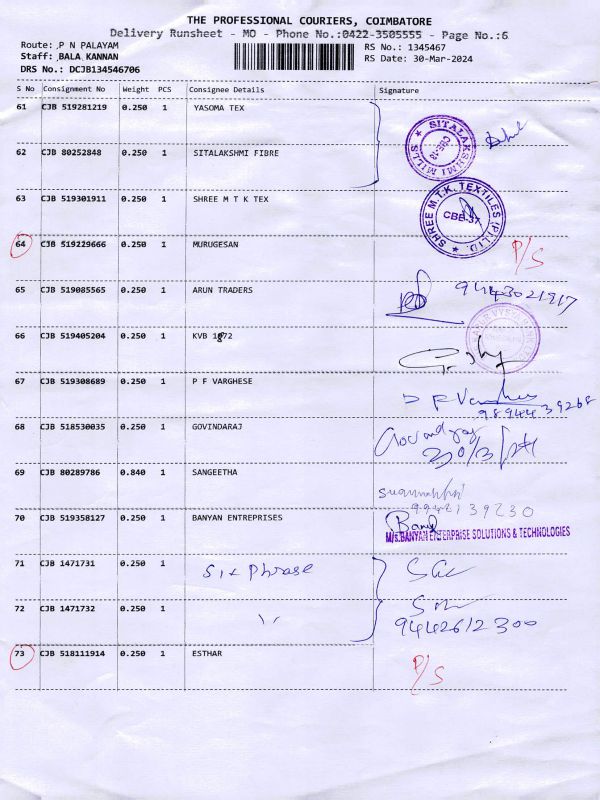 THE PROFESSIONAL COURIERS, COIMBATORE
Delivery Runsheet - MO - Phone No.:0422-3505555 - Page No.:6
Route: ,P N PALAYAM
RS No.: 1345467
Staff: BALA KANNAN
RS Date: 30-Mar-2024
DRS No.: DCJB134546706
S No Consignment No Weight PCS Consignee Details Signature
61 CJB 519281219 0.250 1 YASOMA TEX
62 CJB 80252848 0.250 1 SITALAKSHMI FIBRE
★ SITALAKSHMI MILLS
CBE-18
63 CJB 519301911 0.250 1 SHREE M T K TEX
★ SHREE M.T.K. TEXTILES (P) LTD.
CBE-37
64 CJB 519229666 0.250 1 MURUGESAN P/S
65 CJB 519085565 0.250 1 ARUN TRADERS 9443021917
66 CJB 519405204 0.250 1 KVB 1872
67 CJB 519308689 0.250 1 P F VARGHESE
9894439268
68 CJB 518530035 0.250 1 GOVINDARAJ Govindaraj
30/3
69 CJB 80289786 0.840 1 SANGEETHA
9942139230
70 CJB 519358127 0.250 1 BANYAN ENTREPRISES
M/s.BANYAN ENTERPRISE SOLUTIONS & TECHNOLOGIES
71 CJB 1471731 0.250 1 Six Phrase
72 CJB 1471732 0.250 1 ''
9442612300
73 CJB 518111914 0.250 1 ESTHAR P/S